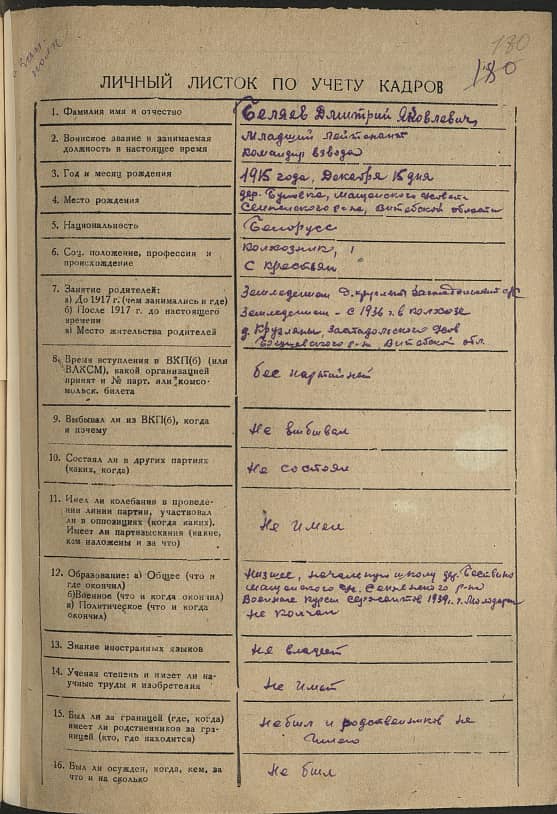 180
180
ЛИЧНЫЙ ЛИСТОК ПО УЧЕТУ КАДРОВ
1. Фамилия имя и отчество
Беляев Дмитрий Яковлевич
2. Воинское звание и занимаемая
должность в настоящее время
Младший Лейтенант
Командир взвода
3. Год и месяц рождения
1915 года, Декабря 15 дня
4. Место рождения
дер.
Сенненского р-на, Витебской области
5. Национальность
Белорусс
6. Соц. положение, профессия и
происхождение
Колхозник,
С крестьян
7. Занятие родителей:
а) До 1917 г. (чем занимались и где)
б) После 1917 г. до настоящего
времени
в) Место жительства родителей
Земледелием
Земледелием - С 1936 г. в колхозе
р-н, Витебской обл.
8. Время вступления в ВКП(б) (или
ВЛКСМ), какой организацией
принят и № парт. или комсо-
мольск. билета
бес партийней
9. Выбывал ли из ВКП(б), когда
и почему
Не выбывал
10. Состоял ли в других партиях
(каких, когда)
Не состоял
11. Имел ли колебания в проведе-
нии линии партии, участвовал
ли в оппозициях (когда каких).
Имеет ли партвзыскания (какие,
кем изложены и за что)
Не имел
12. Образование: а) Общее (что и
где окончил)
б)Военное (что и когда окончил)
в) Политическое (что и когда
окончил)
Низшее, начальную школу дер.
Сенненского р-на
Военное Курсы сержантов 1939 г. г.
не кончал
13. Знание иностранных языков
Не владеет
14. Ученая степень и имеет ли на-
учные труды и изобретения
Не имет
15. Был ли за границей (где, когда)
имеет ли родственников за гра-
ницей (кто, где находится)
Небыл и родственников не
имею
16. Был ли осужден, когда, кем, за
что и на сколько
Не был